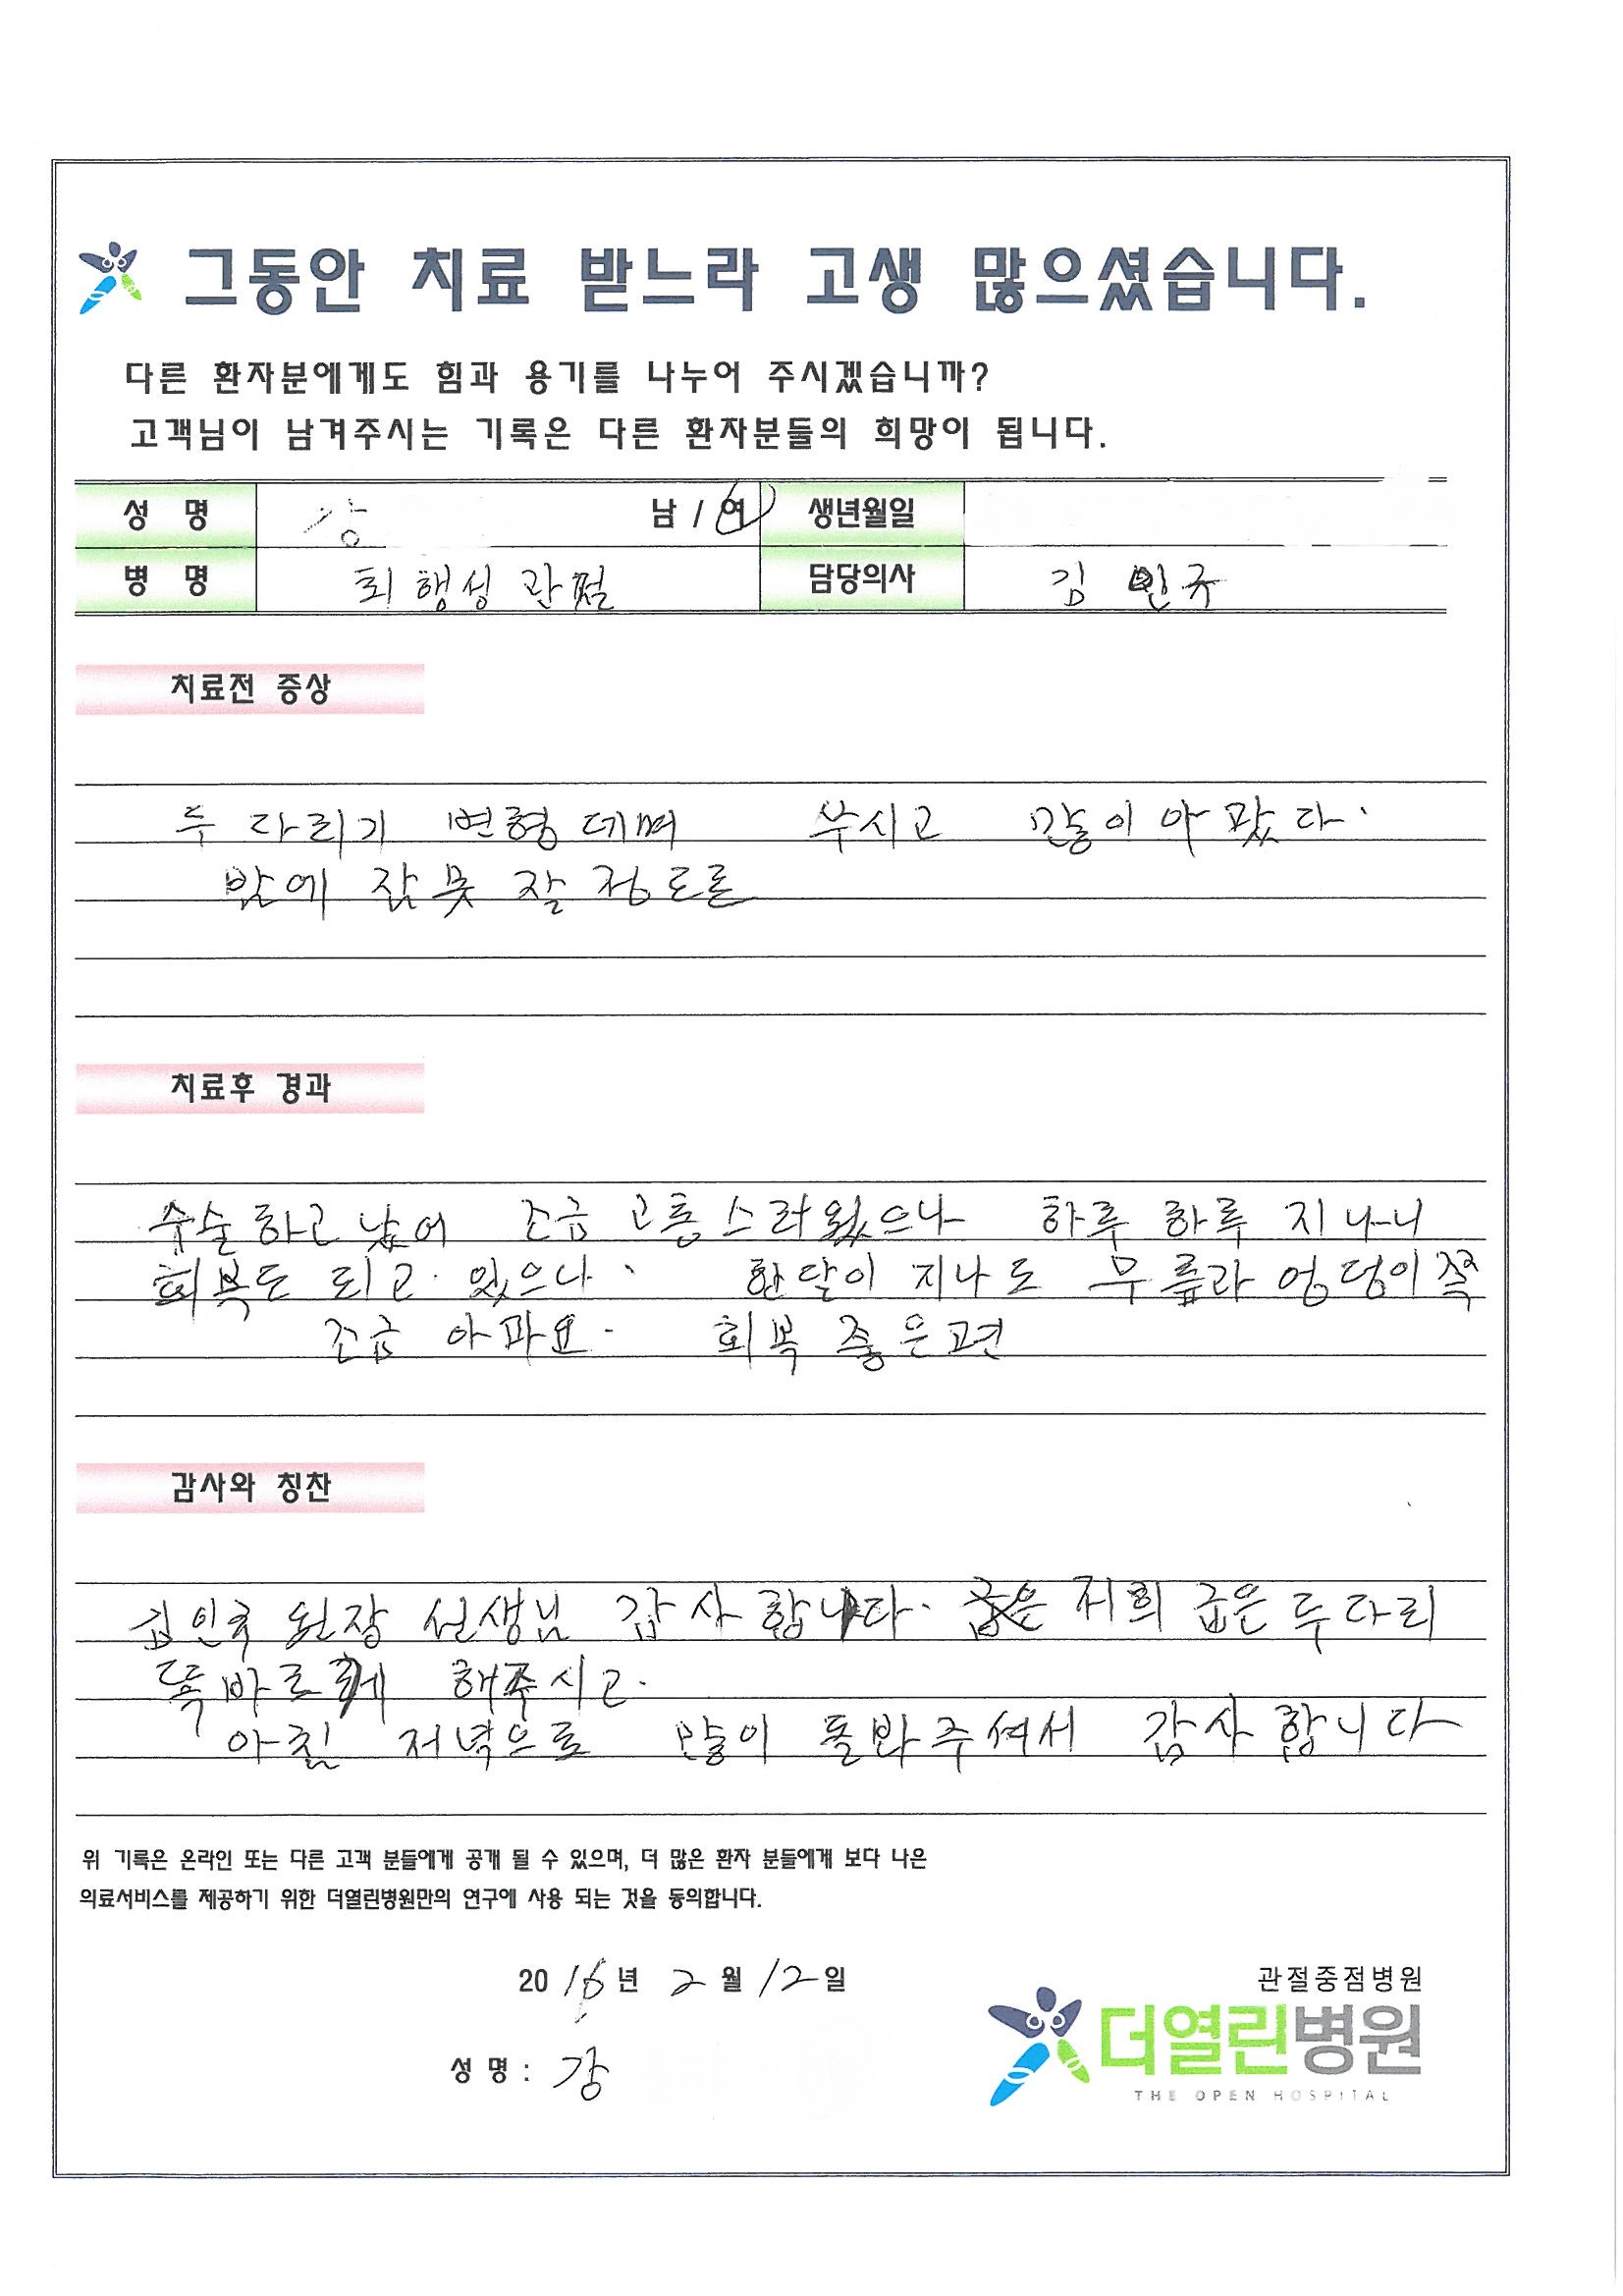 그동안 치료 받느라 고생 많으셨습니다.
다른 환자분에게도 힘과 용기를 나누어 주시겠습니까?
고객님이 남겨주시는 기록은 다른 환자분들의 희망이 됩니다.
성 명 강 남 / 여 생년월일
병 명 퇴행성 관절 담당의사 김 민규
치료전 증상
두 다리가 변형 데며 부시고 많이 아팠다.
밤에 잠 못 잘 정도론
치료후 경과
수술하고 났어 조금 고통스러웠으나 하루 하루 지나니
회복도 되고. 있으나. 한달이 지나도 무릎과 엉덩이쪽
조금 아파요. 회복 좋은편
감사와 칭찬
원장 선생님 감사합니다. 저희 굽은 두다리
똑바르게 해주시고.
아침 저녁으로 많이 돌봐주셔서 감사합니다
위 기록은 온라인 또는 다른 고객 분들에게 공개 될 수 있으며, 더 많은 환자 분들에게 보다 나은
의료서비스를 제공하기 위한 더열린병원만의 연구에 사용 되는 것을 동의합니다.
2016년 2월 12일
성 명 : 강
관절중점병원
더열린병원
THE OPEN HOSPITAL